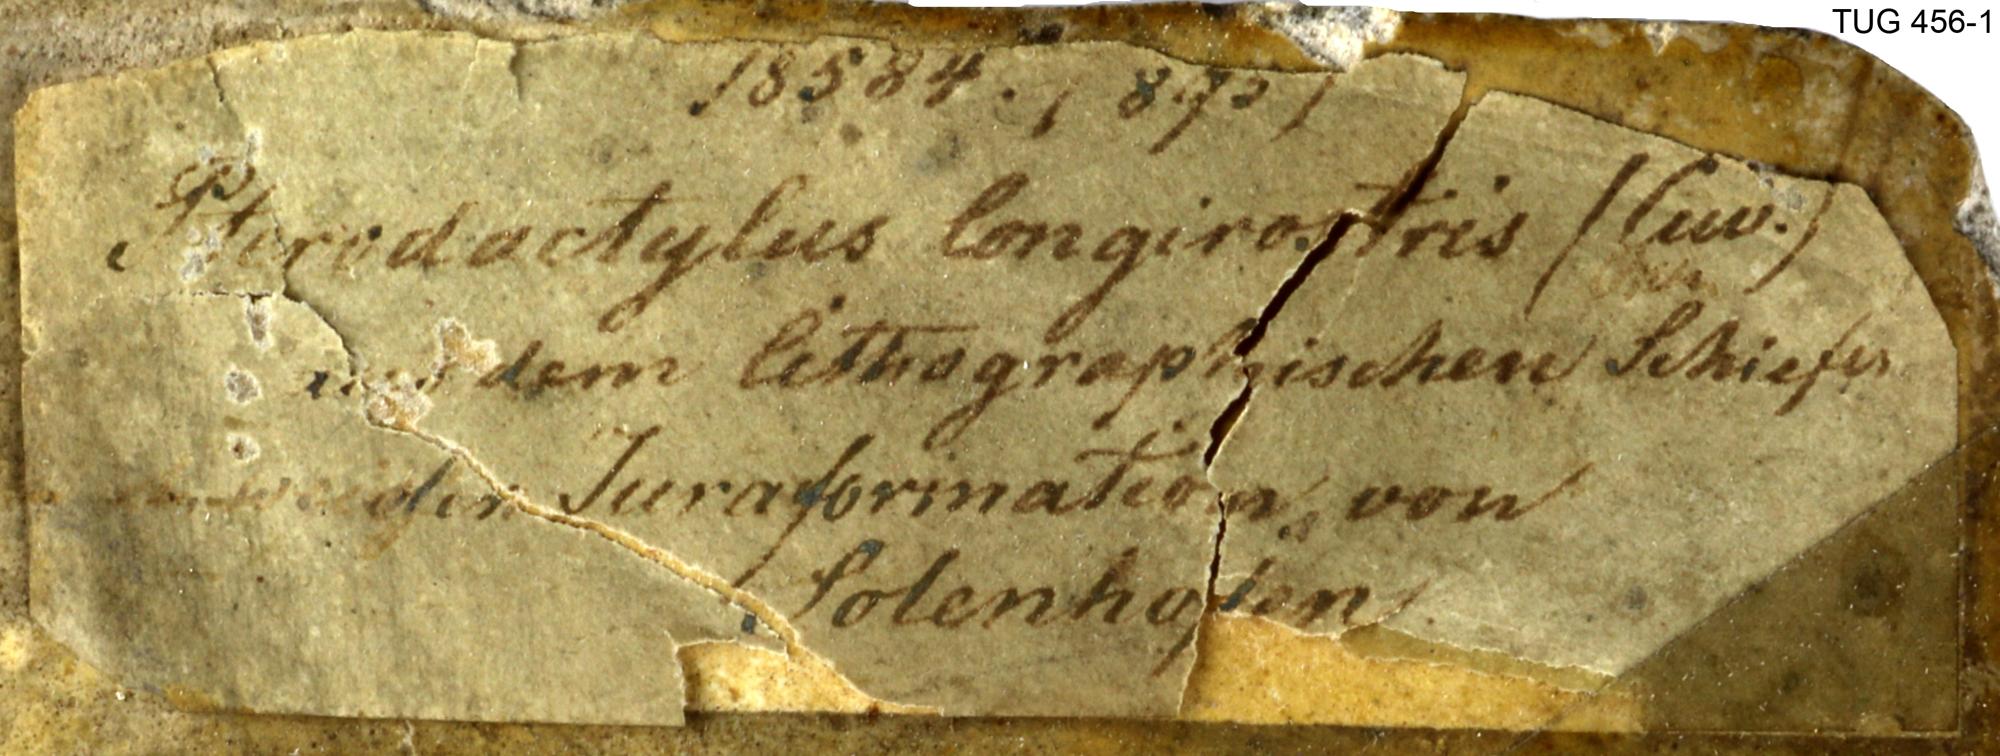 TUG 456-1
18584.
Pterodactylus longirostris (Cuv.)
aus dem lithographischen Schiefer
Juraformation, von
Solenhofen